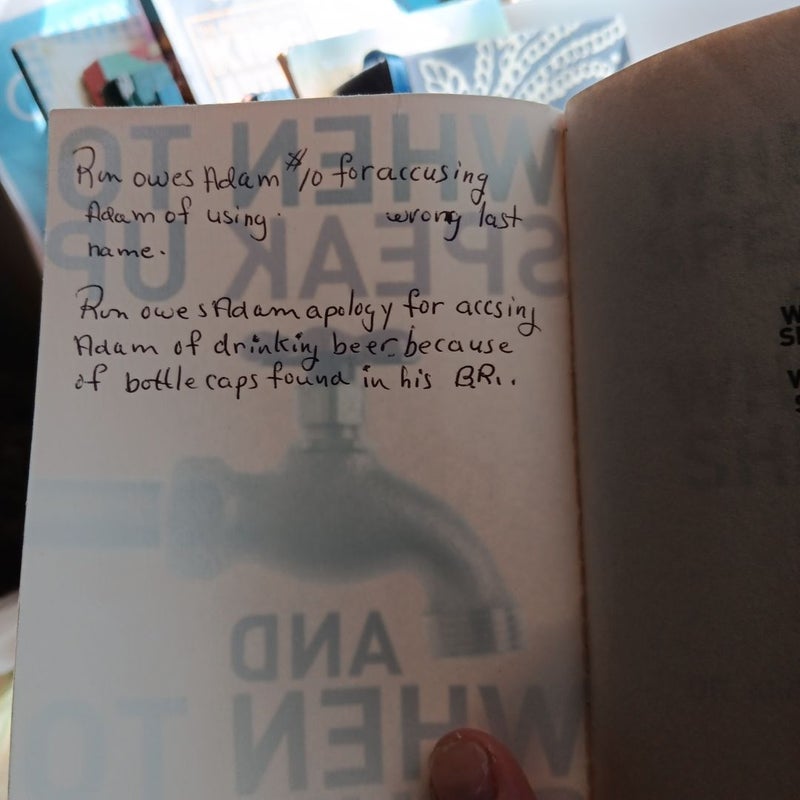 Ron owes Adam $10 for accusing
Adam of using wrong last
name.
Ron owes Adam apology for accsing
Adam of drinking beer because
of bottle caps found in his BR..
WHEN TO
SPEAK UP
AND
WHEN TO